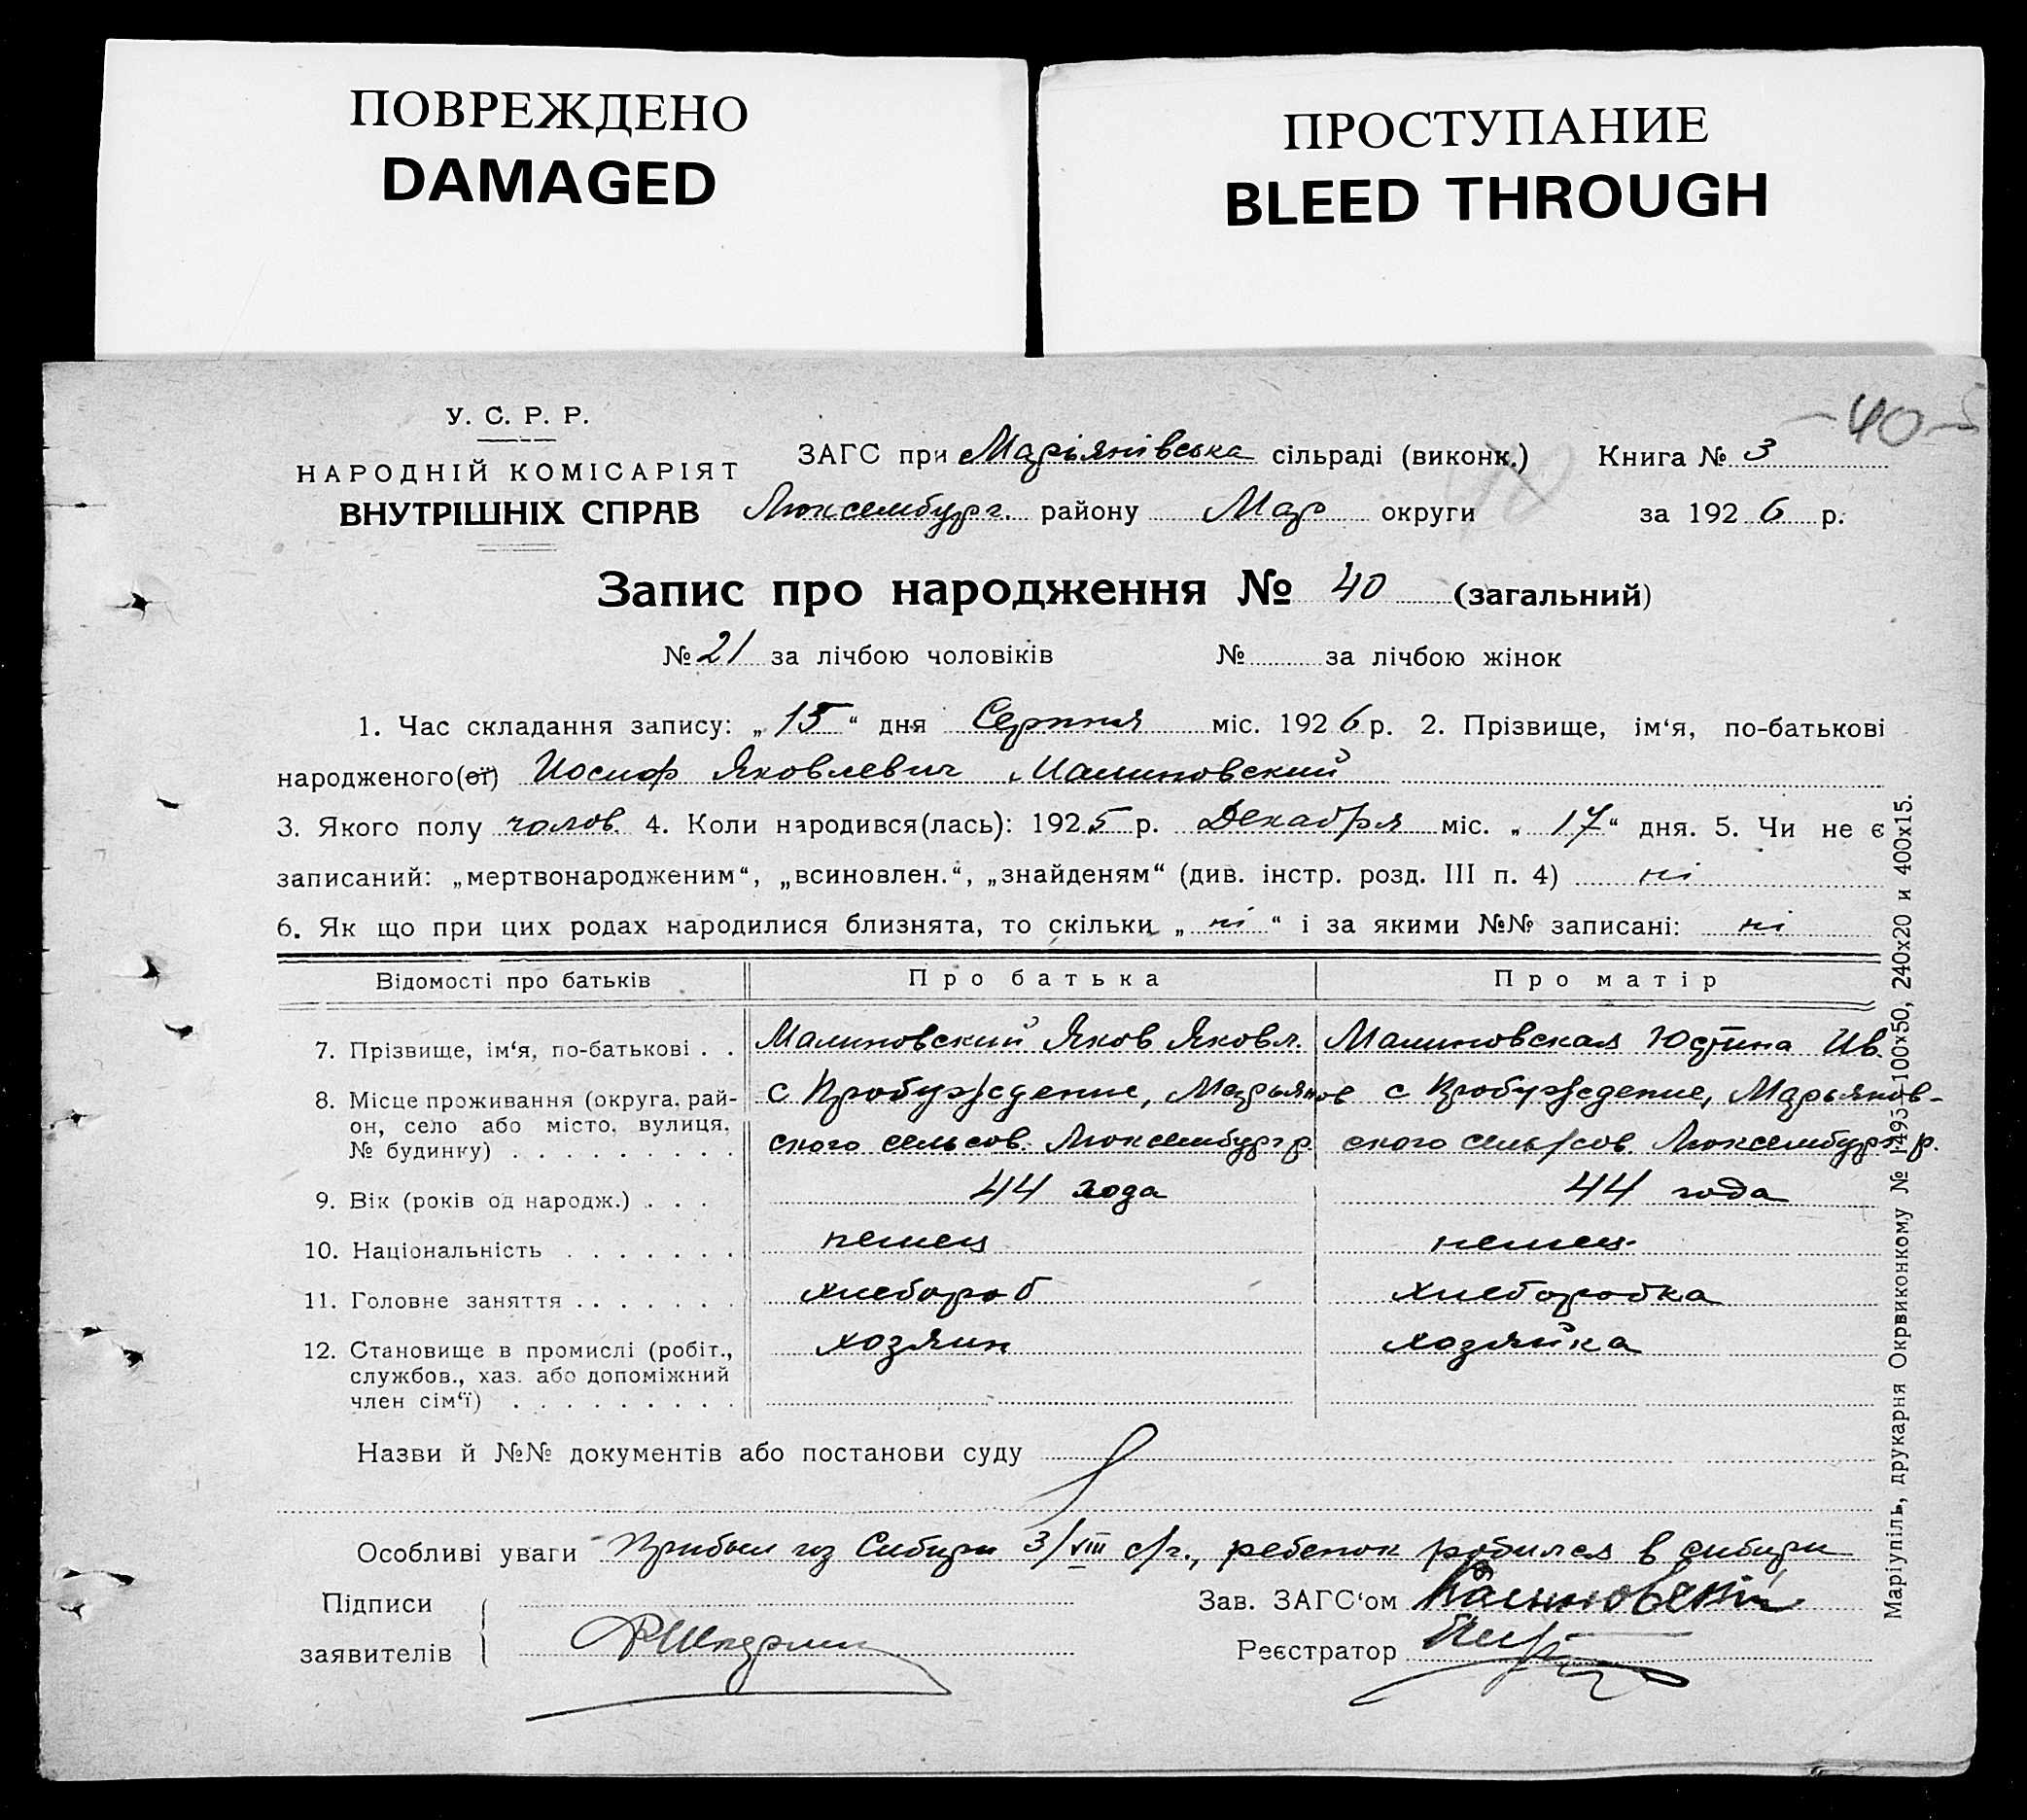 ПОВРЕЖДЕНО
DAMAGED
ПРОСТУПАНИЕ
BLEED THROUGH
У. С. Р. Р.
НАРОДНІЙ КОМІСАРІЯТ
ВНУТРІШНІХ СПРАВ
40
ЗАГС при Мар'янівська сільраді (виконк.) Книга № 3
Люксембург. району Мар округи за 1926 р.
Запис про народження № 40 (загальний)
№ 21 за лічбою чоловіків № за лічбою жінок
1. Час складання запису: „15“ дня Серпня міс. 1926 р. 2. Прізвище, ім‘я, по-батькові
народженого(ої) Иосиф Яковлевич Малиновский
3. Якого полу чолов. 4. Коли народився(лась): 1925 р. Декабря міс. „17“ дня. 5. Чи не є
записаний: „мертвонародженим“, „всиновлен.“, „знайденям“ (див. інстр. розд. III п. 4) ні
6. Як що при цих родах народилися близнята, то скільки „ні“ і за якими №№ записані: ні
Відомості про батьків Про батька Про матір
7. Прізвище, ім‘я, по-батькові . . Малиновский Яков Яковл. Малиновская Юстина Ив.
8. Місце проживання (округа, рай- с Пробуждение, Марьянов с Пробуждение, Марьянов-
он, село або місто, вулиця, ского сельсов. Люксембург р. ского сель/сов. Люксембург р.
№ будинку) . . . . . . . . .
9. Вік (років од народж.) . . . 44 года 44 года
10. Національність . . . . . . . немец немец
11. Головне заняття . . . . . . . хлебороб хлеборобка
12. Становище в промислі (робіт., хозяин хозяйка
службов., хаз. або допоміжний
член сім‘ї) . . . . . . . . .
Назви й №№ документів або постанови суду
Особливі уваги Прибыл из Сибири 3/VIII с/г., ребенок родился в сибири
Підписи Зав. ЗАГС‘ом
заявителів Реєстратор
Маріупіль, друкарня Окрвиконкому № 1495—100х50, 240х20 и 400х15.